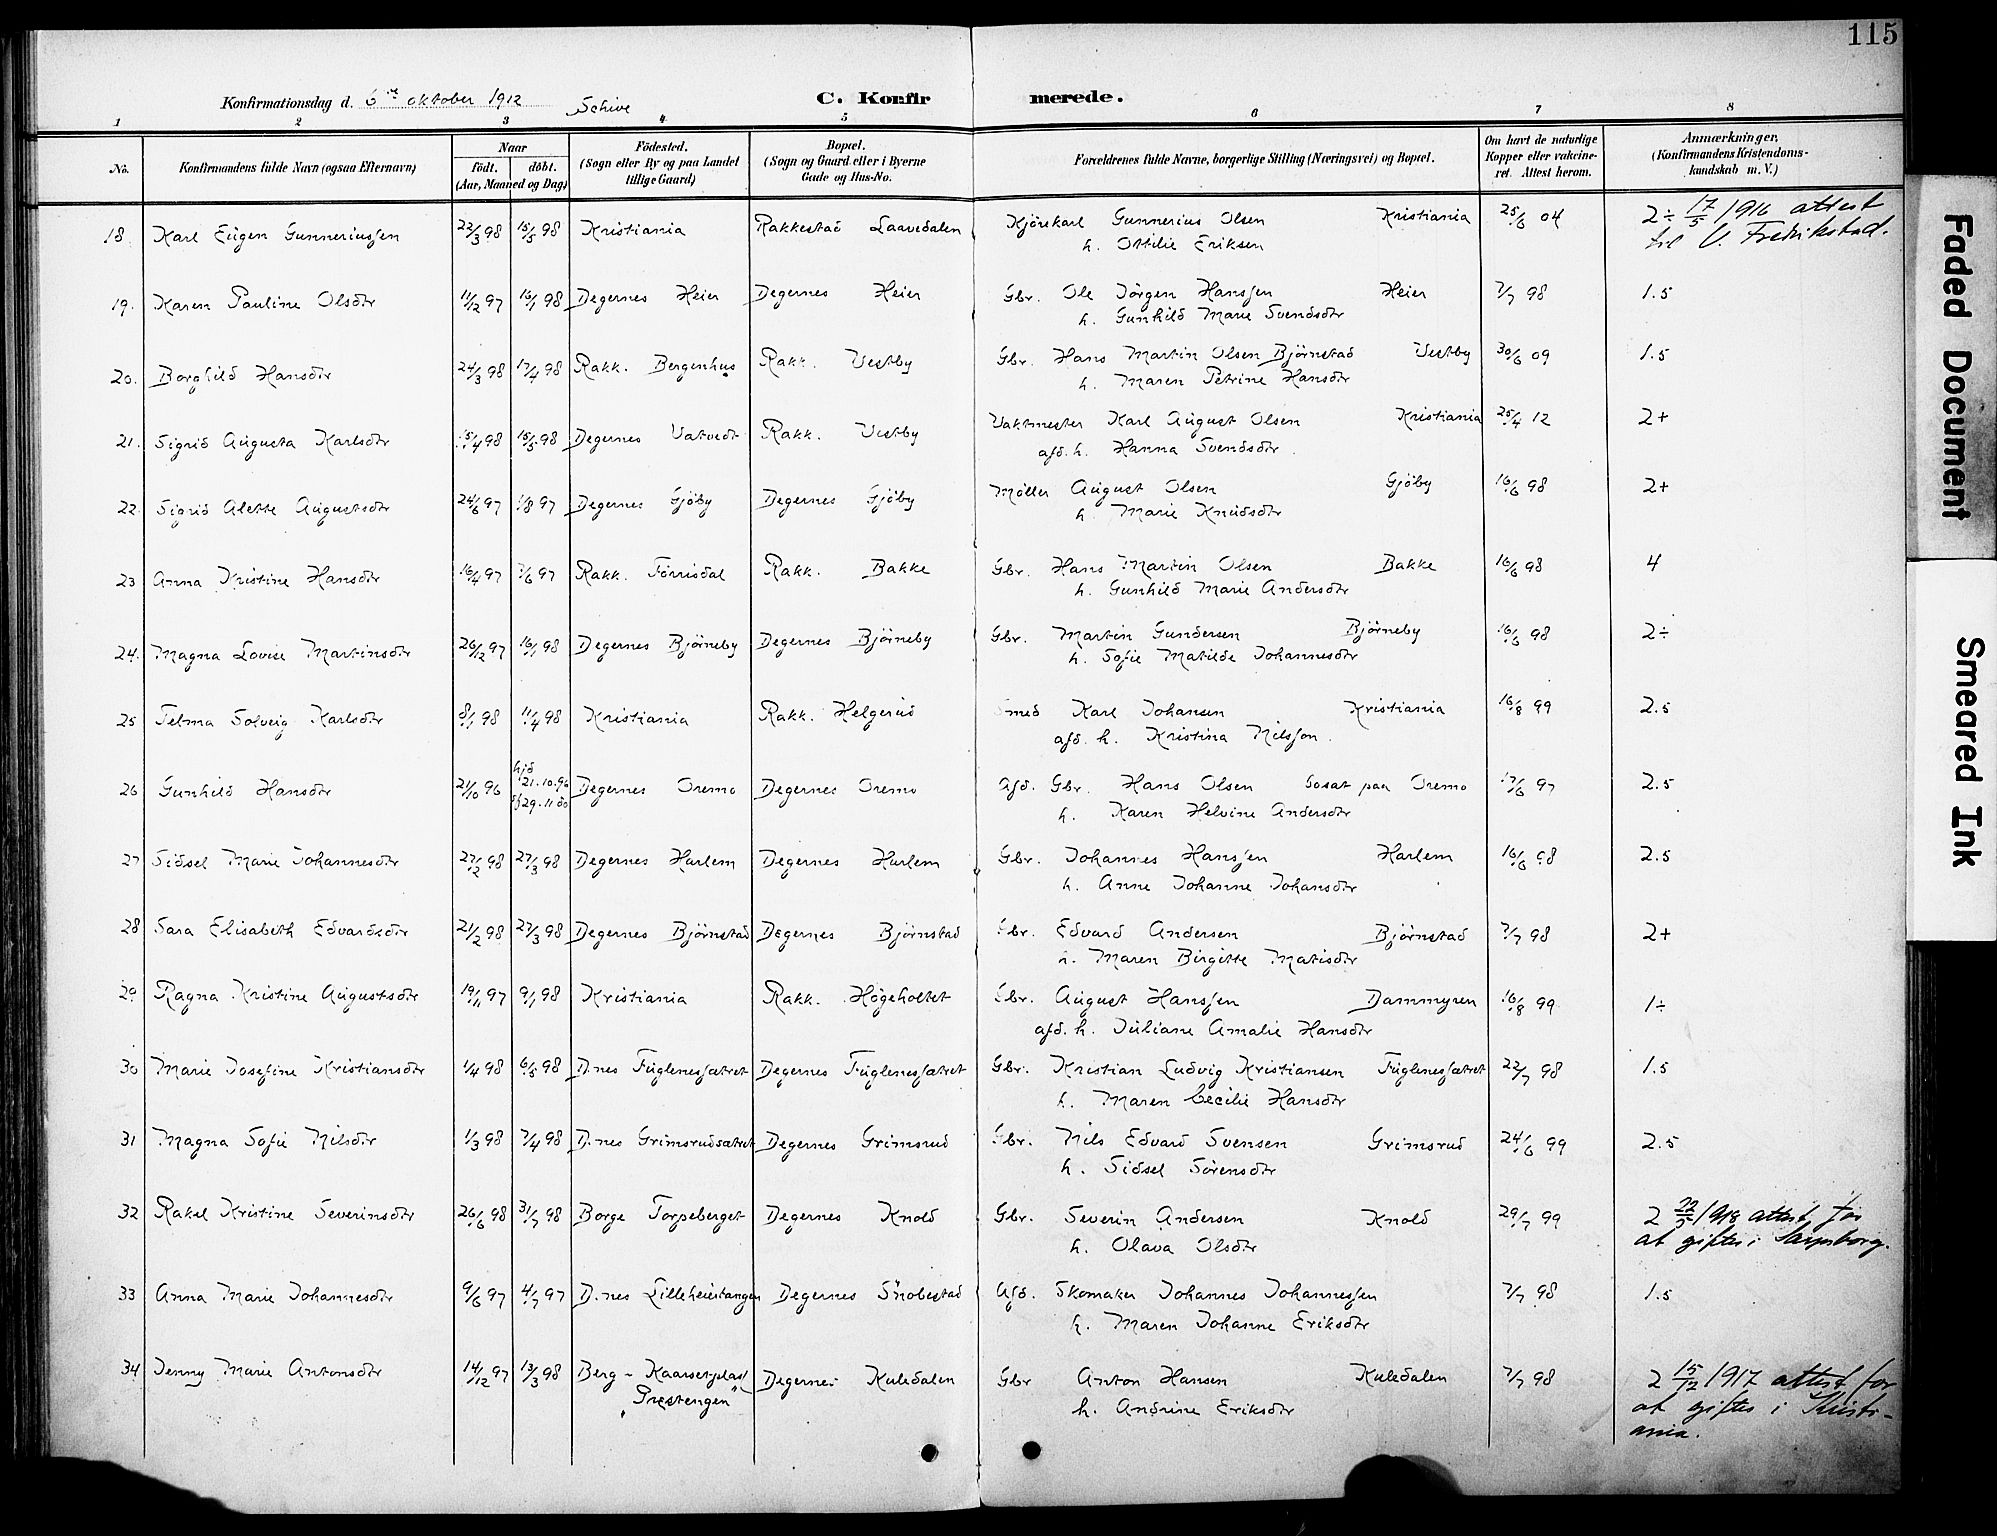 115
Konfirmationsdag d. 6te oktober 1912 Schive C. Konfirmerede.
1 2 3 4 5 6 7 8
No. Konfirmandens fulde Navn (ogsaa Efternavn) Naar født. døbt. (Aar, Maaned og Dag) Fødested. (Sogn eller By og paa Landet tillige Gaard) Bopæl. (Sogn og Gaard eller i Byerne Gade og Hus-No. Forældrenes fulde Navne, borgerlige Stilling (Næringsvei) og Bopæl. Om havt de naturlige Kopper eller vakcineret. Attest herom. Anmærkninger, (Konfirmandens Kristendomskundskab m. V.)
18. Karl Eugen Gunneriussen 22/3 98 15/5 98 Kristiania Rakkestad Laavedalen Kjörekarl Gunnerius Olsen Kristiania 25/6 04 2÷ 17/5 1916 attest
h. Ottilie Eriksen til V. Fredrikstad.
19. Karen Pauline Olsdtr 11/12 97 16/1 98 Degernes Heier Degernes Heier Gbr. Ole Jörgen Hanssen Heier 7/7 98 1.5
h. Gunhild Marie Svendsdtr
20. Borghild Hansdtr 24/3 98 17/4 98 Rakk. Bergenhus Rakk. Vestby Gbr. Hans Martin Olsen Björnstad Vestby 30/6 09 1.5
h. Maren Petrine Hansdtr
21. Sigrid Augusta Karlsdtr 15/4 98 15/5 98 Degernes Vatvedt Rakk. Vestby Vaktmester Karl August Olsen Kristiania 25/4 12 2+
afd. h. Hanna Svendsdtr.
22. Sigrid Alette Augustsdtr 24/6 97 1/8 97 Degernes Gjöby Degernes Gjöby Möller August Olsen Gjöby 16/6 98 2+
h. Marie Knudsdtr
23 Anna Kristine Hansdtr 16/4 97 7/6 97 Rakk. Förrisdal Rakk. Bakke Gbr. Hans Martin Olsen Bakke 16/6 98 4
h. Gunhild Marie Andersdtr
24. Magna Lovise Martinsdtr 26/12 97 16/1 98 Degernes Björneby Degernes Björneby Gbr. Martin Gundersen Björneby 16/6 98 2÷
h. Sofie Matilde Johannesdtr
25 Telma Solveig Karlsdtr 8/1 98 11/4 98 Kristiania Rakk. Helgerud Smed Karl Johansen Kristiania 16/8 99 2.5
afd. h. Kristina Nilsson.
26 Gunhild Hansdtr 21/10 96 hjd 21.10.96 Degernes Oremo Degernes Oremo Afd. Gbr. Hans Olsen bosat paa Oremo 17/6 97 2.5
h. Karen Helvine Andersdtr
27 Sidsel Marie Johannesdtr 27/2 98 27/3 98 Degernes Harlem Degernes Harlem Gbr. Johannes Hanssen Harlem 16/6 98 2.5
h. Anne Johanne Johansdtr
28 Sara Elisabeth Edvardsdtr 21/2 98 27/3 98 Degernes Björnstad Degernes Björnstad Gbr. Edvard Andersen Björnstad 7/7 98 2+
h. Maren Birgitte Matisdtr
29 Ragna Kristine Augustsdtr 19/11 97 9/1 98 Kristiania Rakk. Högeholtet Gbr. August Hanssen Dammyren 16/8 99 1÷
afd. h. Juliane Amalie Hansdtr
30 Marie Josefine Kristiansdtr 1/4 98 6/5 98 D.nes Fuglenessætret Degernes Fuglenessætret Gbr. Kristian Ludvig Kristiansen Fuglenessætret 22/7 98 1.5
h. Maren Cecilie Hansdtr
31 Magna Sofie Nilsdtr 1/3 98 7/4 98 D.nes Grimsrudsætret Degernes Grimsrud Gbr. Nils Edvard Svensen Grimsrud 24/6 99 2.5
h. Sidsel Sörensdtr
32 Rakel Kristine Severinsdtr 26/6 98 31/7 98 Borge Torpeberget Degernes Knold Gbr. Severin Andersen Knold 29/7 99 2 22/5 1918 attest for
h. Olava Olsdtr at giftes i Sarpsborg.
33 Anna Marie Johannesdtr 9/6 97 4/7 97 D.nes Lilleheiestangen Degernes Snobestad Afd. Skomaker Johannes Johannessen 7/7 98 1.5
h. Maren Johanne Eriksdtr
34 Jenny Marie Antonsdtr 14/12 97 13/3 98 Berg - Kaarsetplass Degernes Kuledalen Gbr Anton Hansen Kuledalen 7/7 98 2 15/12 1917 attest for
"Prestengen" h. Andrine Eriksdtr at giftes i Kristiania.
Faded Document
Smeared Ink